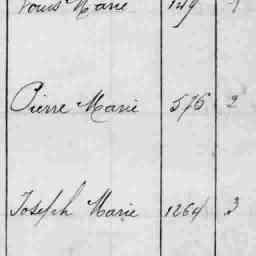 Louis Marie 149 1
Pierre Marie 575 2
Joseph Marie 1264 3